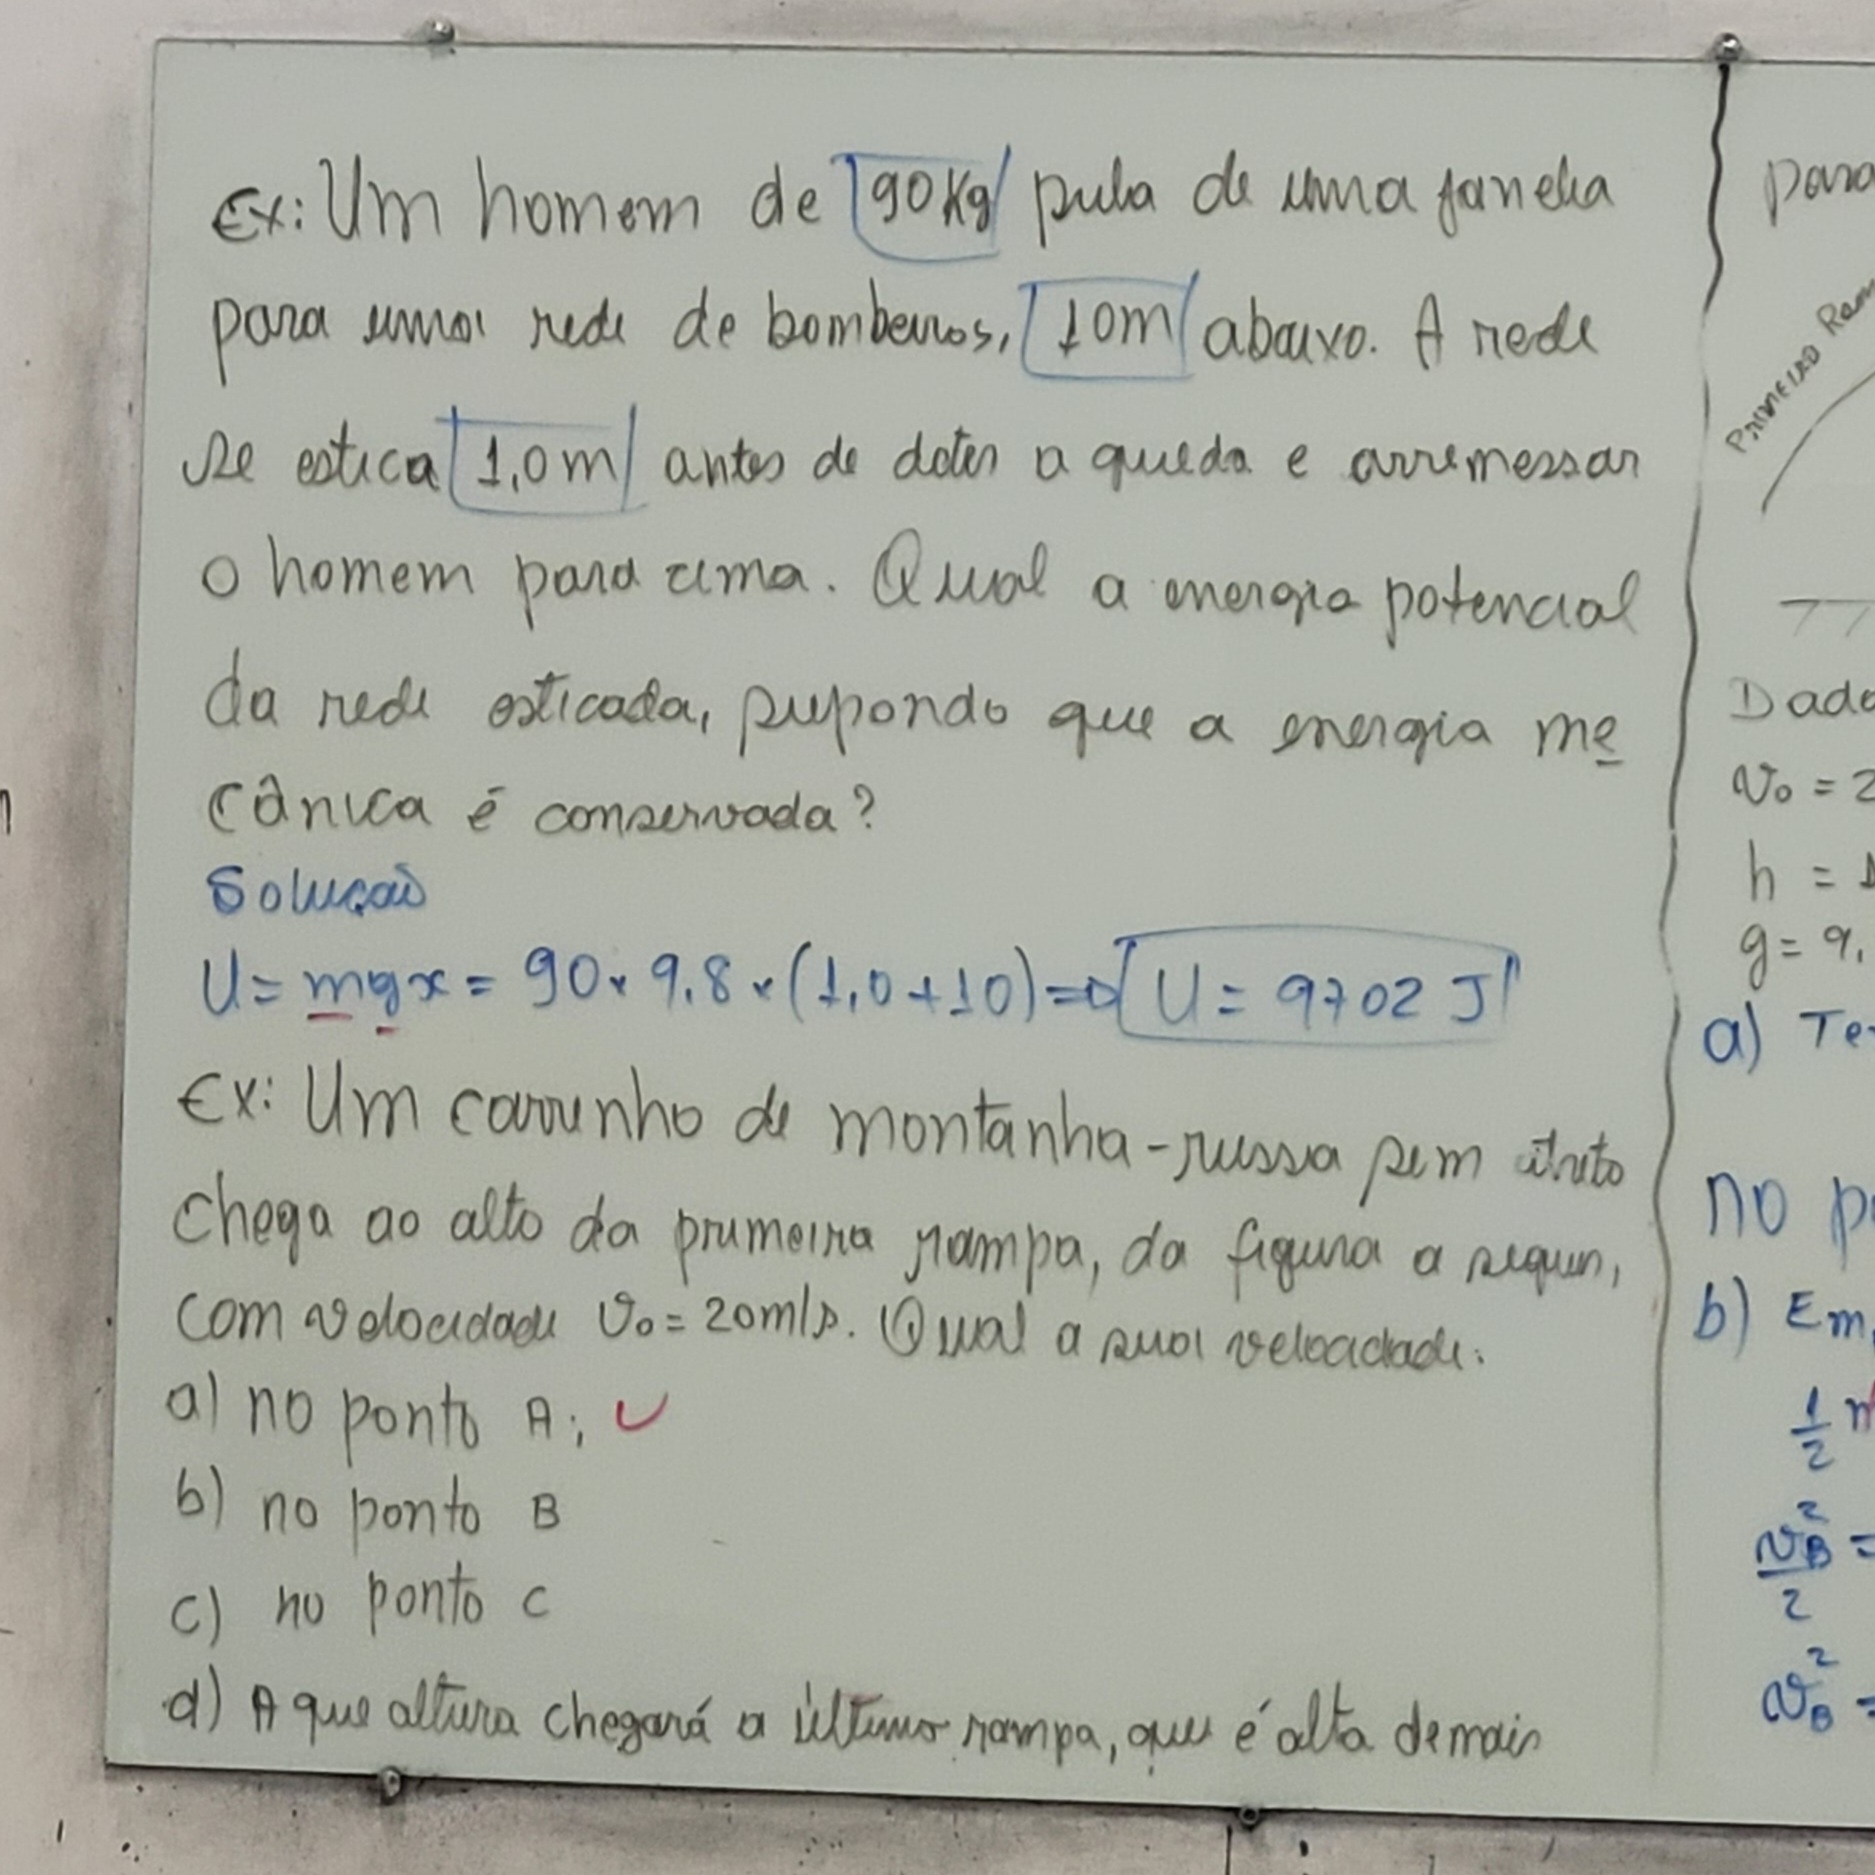 Ex: Um homem de 90Kg pula de uma janela
para uma rede de bombeiros, 10m abaixo. A rede
se estica 1,0m antes de deter a queda e arremessar
o homem para cima. Qual a energia potencial
da rede esticada, supondo que a energia me
cânica é conservada?
Solução
U = mgx = 90 × 9.8 × (1,0 + 10) ⇒ U = 9702 J
Ex: Um carrinho de montanha-russa sem atrito
chega ao alto da primeira rampa, da figura a seguir,
com velocidade v₀ = 20m/s. Qual a sua velocidade:
a) no ponto A;
b) no ponto B
c) no ponto C
d) A que altura chegará a última rampa, que é alta demais
para
PRIMEIRO Ram
Dado
v₀ = 2
h =
g = 9,
a) Te
no p
b) Em
1/2 m
v_B²/2 =
v_B² =